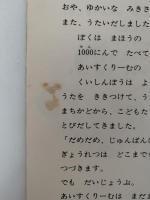 おや、ゆかいな みきさ
また、うたいだしました
ぼくは まほうの
1000にんで たべて
あいすくりーむの
くいしんぼうは よ
うたを ききつけて、う
まちかどから、こどもた
とびだしてきました。
「だめだめ、じゅんばんに
ぎょうれつは どこまで
つづきます。
でも だいじょうぶ。
あいすくりーむは まだま